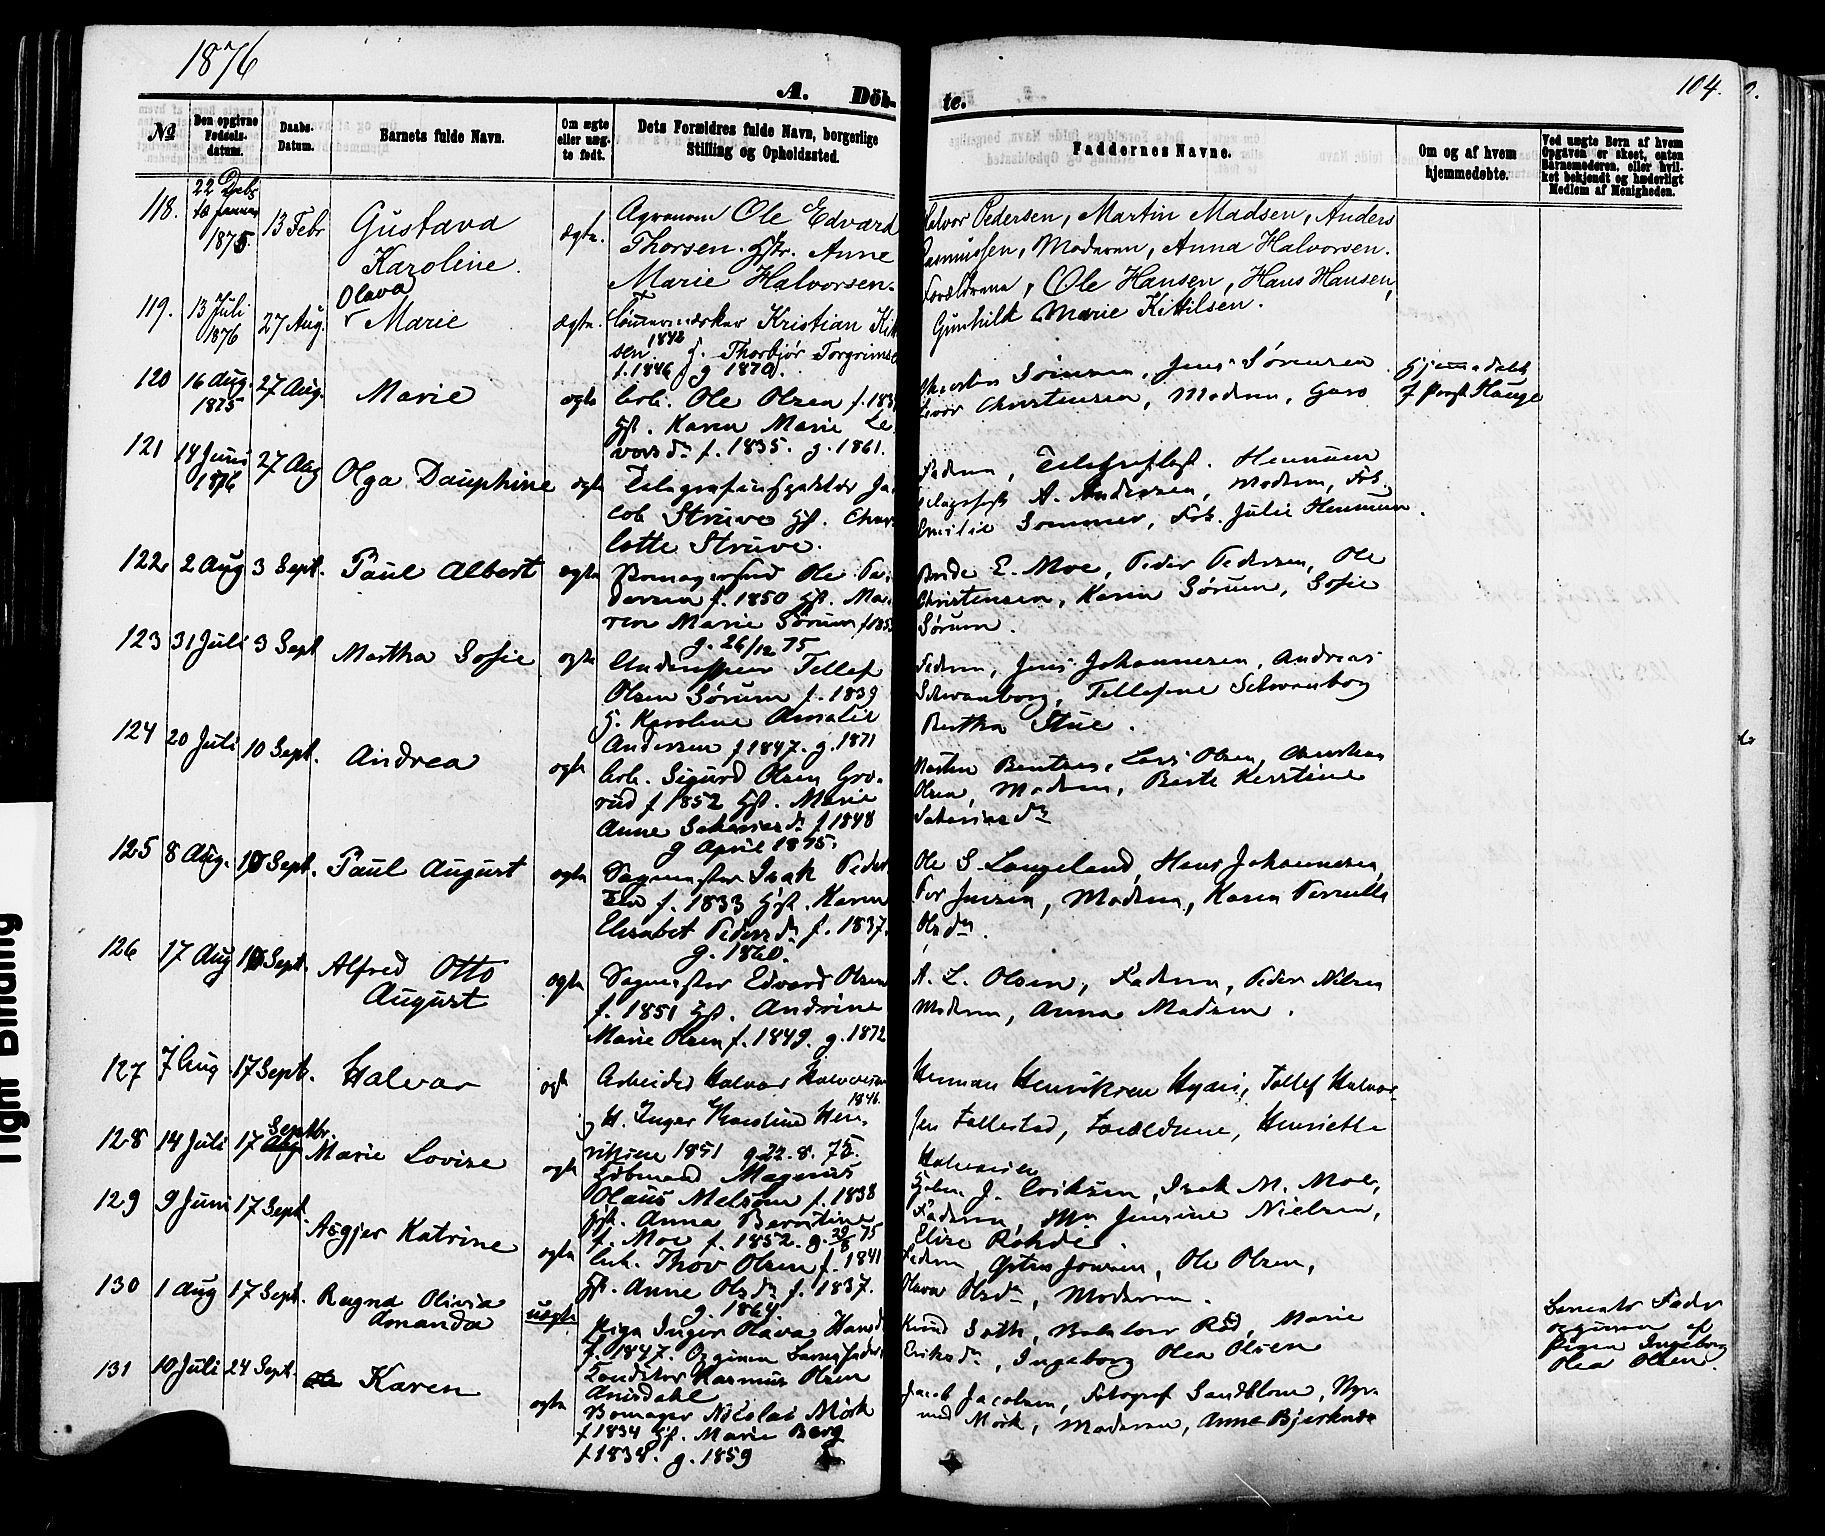 1876
104.
A. Döb-
te.
No
Den opgivne Fødsels-datum.
Daabs-Datum.
Barnets fulde Navn.
Om ægte eller uæg-te født.
Dets Forældres fulde Navn, borgerlige Stilling og Opholdssted.
Faddernes Navne.
Om og af hvem hjemmedøbte.
Ved uægte Børn af hvem Opgaven er skeet, enten Barnemoderen, eller hvil-ket bekjendt og hæderligt Medlem af Menigheden.
118.
22
1875
13 Febr
Gustava
Karoline.
ægte.
Agronom Ole Edvard
Thorsen. Hstr. Anne
Marie Halvorsen.
Halvor Pedersen, Martin Madsen, Anders
Rasmussen, Moderen, Anna Halvorsen.
119.
13 Juli
1876
27 Aug.
Olava
Marie
ægte.
Tømmermærker Kristian Kit
sen 1842 H. Thorbjør Torgrims
f. 1846 g 1870.
Forældrene, Ole Hansen, Hans Hansen,
Gunhild Marie Kittilsen.
120
16 Aug.
1875
27 Aug.
Marie
ægte
Arb. Ole Olsen f. 183
Hst. Karen Marie Le-
vorsdr f. 1835. g. 1861.
Sørensen, Jens Sørensen
Levor Christensen, Modern, Guro
Hjemmedøbt
f Præst Hauge
121
18 Juni
1876
27 Aug
Olga Dauphine
ægte
Telegrafinspektør Ja-
cob Struve Hst. Char-
lotte Struve.
Fadern, Telegrafbest. Hennum
Telegrafbest A. Andersen, Modern, Frk.
Emilie Sommer, Frk. Julie Hennum.
122
2 Aug
3 Sept.
Paul Albert
ægte
Ole Pe-
dersen f. 1850 Hst. Ma-
ren Marie Sørum f 185
g. 26/12 75
E. Moe, Peder Pedersen, Ole
Christensen, Karen Sørum, Sofie
Sørum.
123
31 Juli
3 Sept
Martha Sofie
ægte
Tellef
Olsen Sørum f. 1839
H. Karoline Amalie
Andersen f 1847. g. 1871
Fadern, Jens Johannesen, Andreas
Schvanborg, Tellefine Schvanborg
Bertha Stue.
124
20 Juli
10 Sept.
Andrea
ægte
Arb. Sigurd Olsen Gro-
rud f 1852 Hst. Marie
Anne Sakariasdr f 1848
g April 1875.
Morten Bentsen, Lars Olsen, Christian
Olsen, Modern, Berte Kerstine
Sakariasdr
125
8 Aug.
10 Sept.
Paul August
ægte
Sagmester Isak Peder
f. 1833 Hst. Karen
Elisabet Pedersdr f. 1837.
g. 1860.
Ole S. Langeland, Hans Johannesen,
Per Jensen, Modern, Karen Pernille
Olsdr.
126
17 Aug
10 Sept.
Alfred Otto
August
ægte
Sagmester Edvard Olsen
f. 1851 Hst. Andrine
Marie Olsen f. 1849. g. 1872
A. L. Olsen, Fadern, Peder Nilsen
Modern, Anna Madsen.
127
7 Aug
17 Sept.
Halvor
ægte
Arbeider Halvor Halvorsen
1846.
g H. Inger Karoline Hen-
riksine 1851 g 22. 8. 75.
Herman Henriksen Hydis, Tollef Halvor-
sen Tollestad, Forældrene, Henriette
Halvorsen
128
14 Juli
17 Septbr.
Marie Lovise
ægte
Kjøbmand Magnus
Olaus Melsom f. 1838
Hst. Anna Berntine
f. Moe f. 1852. g. 29/8 75
J. Eriksen, Isak M. Moe,
Fadern, Jensine Nielsen,
Elise Rohde.
129
9 Juni
17 Sept.
Asgjer Katrine
ægte
Arb. Thov Olsen f. 1841
Hst. Anne Olsdr f. 1837.
g. 1864
Fadern, Jonsen, Ole Olsen,
Olava Olsdr, Moderen.
130
1 Aug
17 Sept.
Ragna Olivia
Amanda
uægte
Pige Inger Olava Hansdr
f. 1847. Opgiven Barnefader
Konditor Rasmus Olsen
Arisdahl
Knud Sath, Rød, Marie
Eriksdr, Ingeborg Olea Olsen
Barnets Fader
opgiven af
Pigen Ingeborg
Olea Olsen.
131
10 Juli
24 Sept.
Karen
ægte
Nicolai Mørk
f 1834 Hst. Marie Berg
f 1838. g. 1859
Jacob Jacobsen, Fotograf Sandblom, Nyr-
Mørk, Moderen, Anne Bjerknæs
Tight Binding